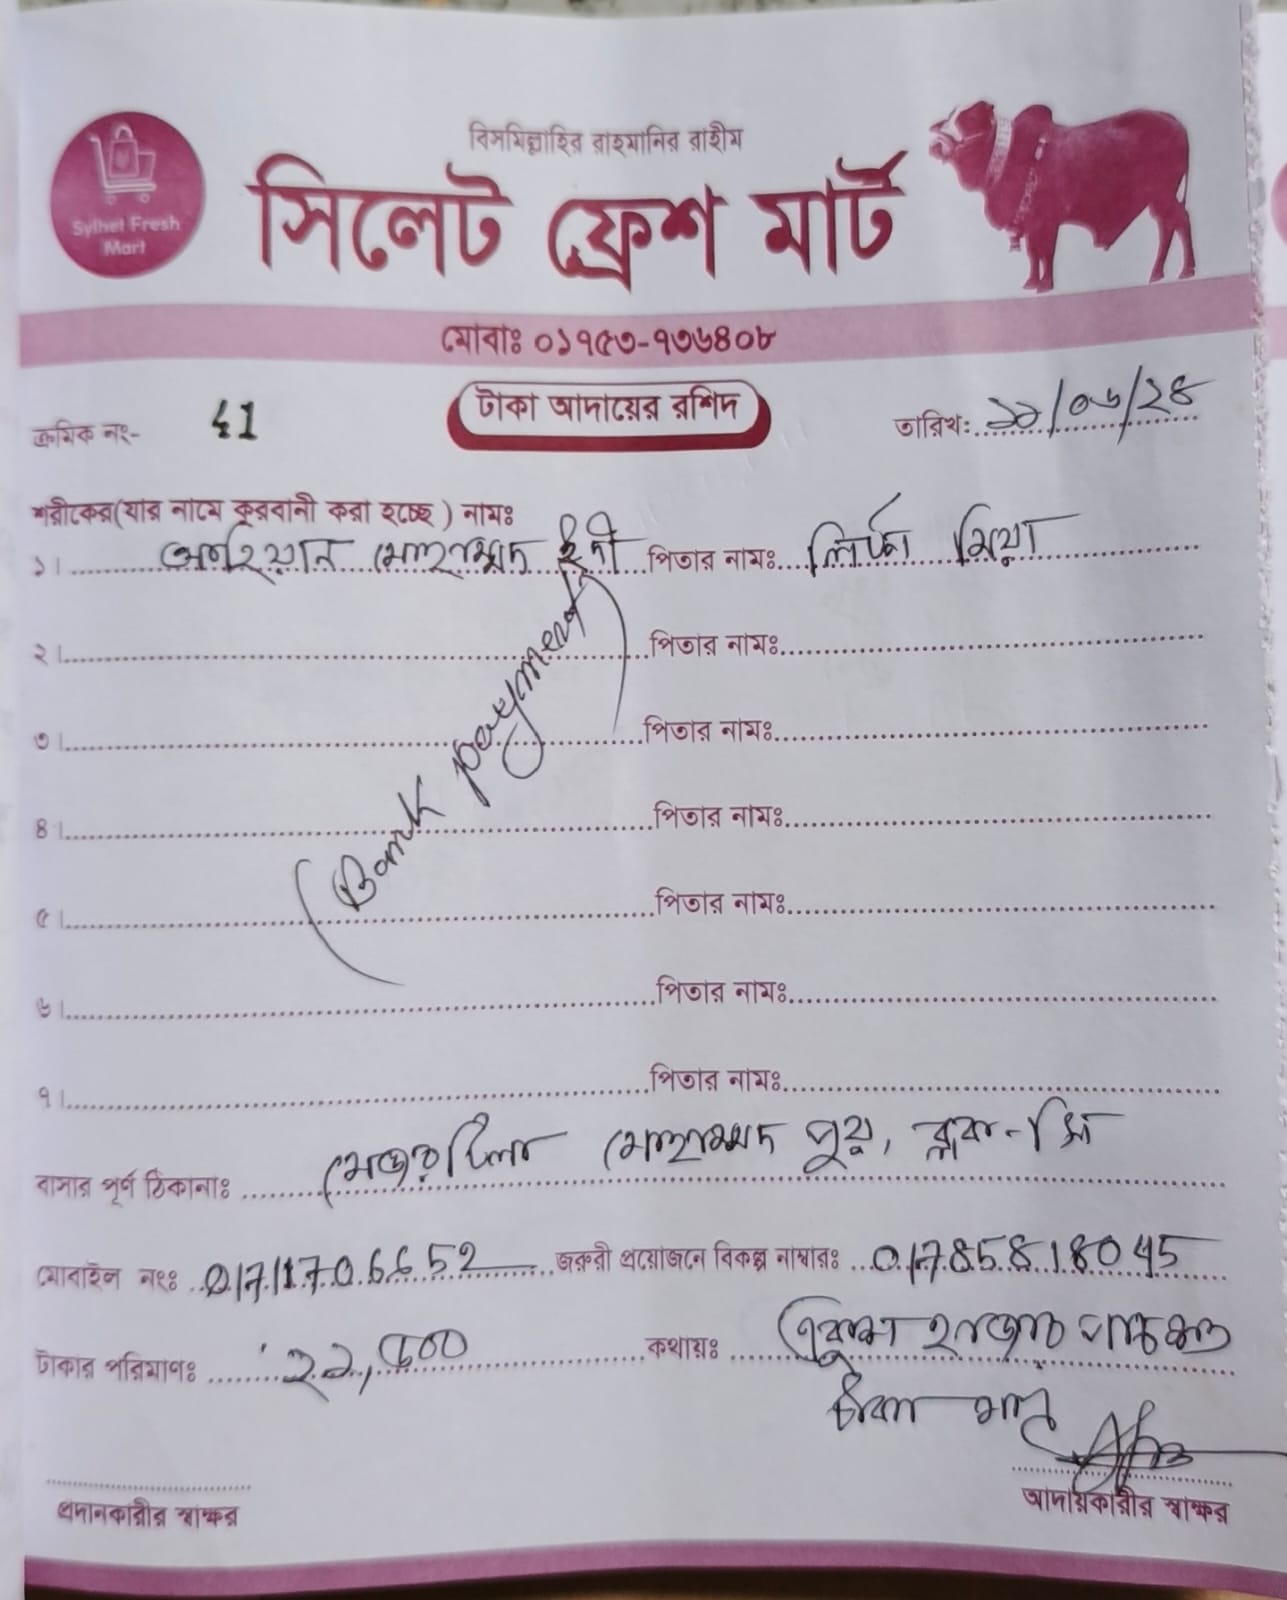 বিসমিল্লাহির রাহমানির রাহীম
Sylhet Fresh
Mart
সিলেট ফ্রেশ মার্ট
মোবাঃ ০১৭৫৩-৭৩৬৪০৮
টাকা আদায়ের রশিদ
ক্রমিক নং- 41
তারিখঃ ১১/০৬/২৪
শরীকের(যার নামে কুরবানী করা হচ্ছে) নামঃ
১। মোহাম্মদ পিতার নামঃ মিয়া
২। পিতার নামঃ
৩। পিতার নামঃ
৪। পিতার নামঃ
৫। পিতার নামঃ
৬। পিতার নামঃ
৭। পিতার নামঃ
(Bank payment)
বাসার পূর্ণ ঠিকানাঃ মেজরটিলা মোহাম্মদ পুর, ব্লক-সি
মোবাইল নংঃ 01711706652 জরুরী প্রয়োজনে বিকল্প নাম্বারঃ 01785818045
টাকার পরিমাণঃ ২১,৫০০ কথায়ঃ একুশ হাজার পাঁচশত
টাকা মাত্র
প্রদানকারীর স্বাক্ষর
আদায়কারীর স্বাক্ষর